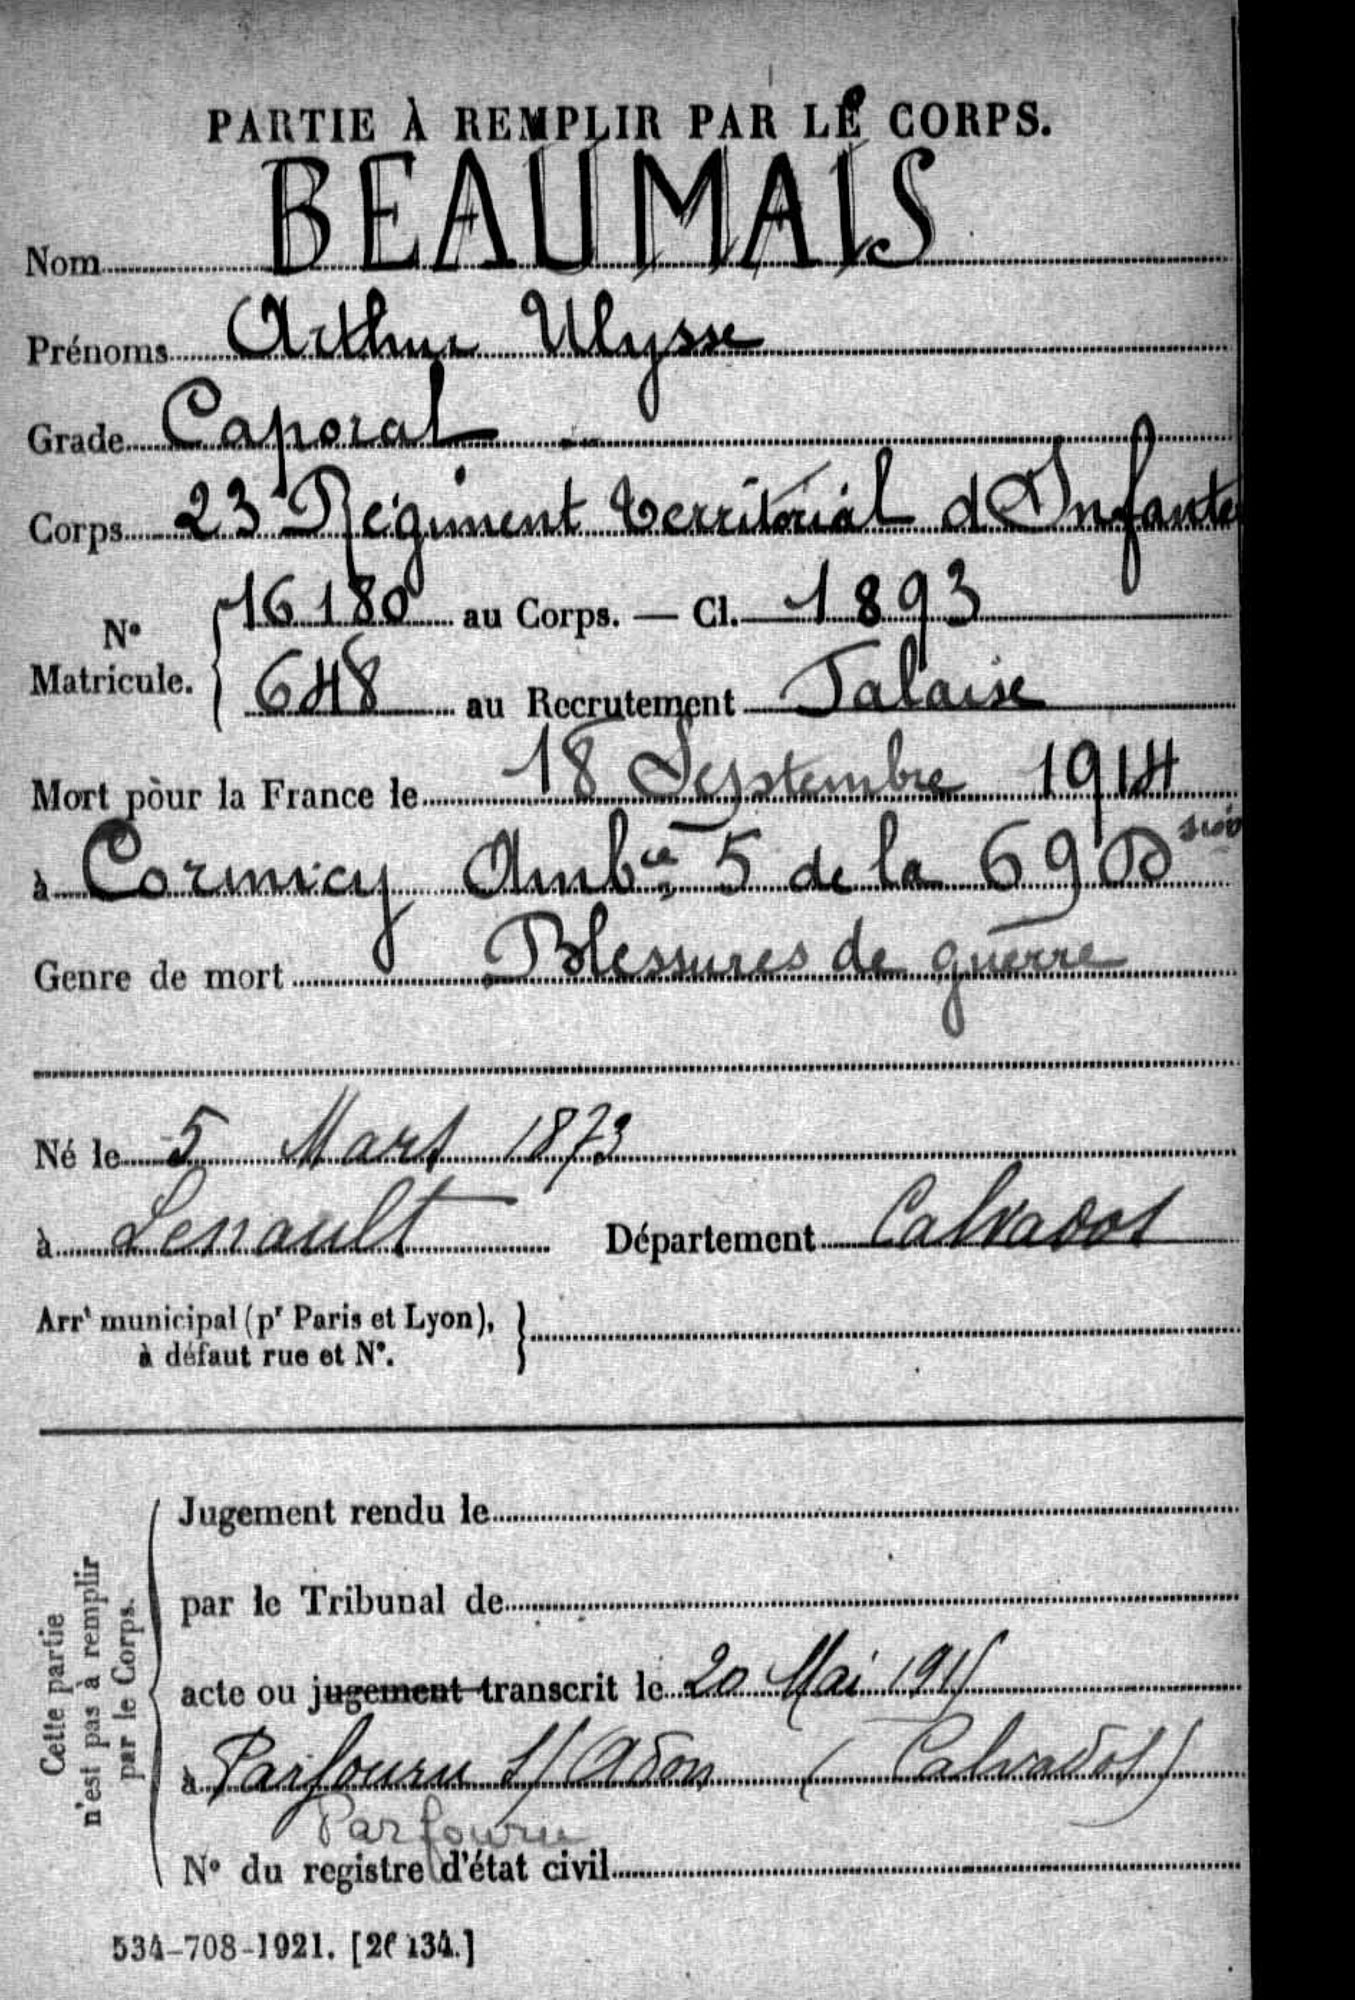 PARTIE À REMPLIR PAR LE CORPS.
Nom BEAUMAIS
Prénoms Arthur Ulysse
Grade Caporal
Corps 23 Régiment territorial d'Infanterie
N° Matricule. 16180 au Corps. — Cl. 1893
648 au Recrutement Falaise
Mort pour la France le 18 Septembre 1914
à Cormicy Ambce 5 de la 69 Dsion
Genre de mort Blessures de guerre
Né le 5 Mars 1873
à Lenault Département Calvados
Arrt municipal (pr Paris et Lyon),
à défaut rue et N°.
Cette partie
n'est pas à remplir
par le Corps.
Jugement rendu le
par le Tribunal de
acte ou jugement transcrit le 20 Mai 1915
à Parfouru s/ Odon (Calvados)
Parfouru
N° du registre d'état civil
534-708-1921. [26134.]